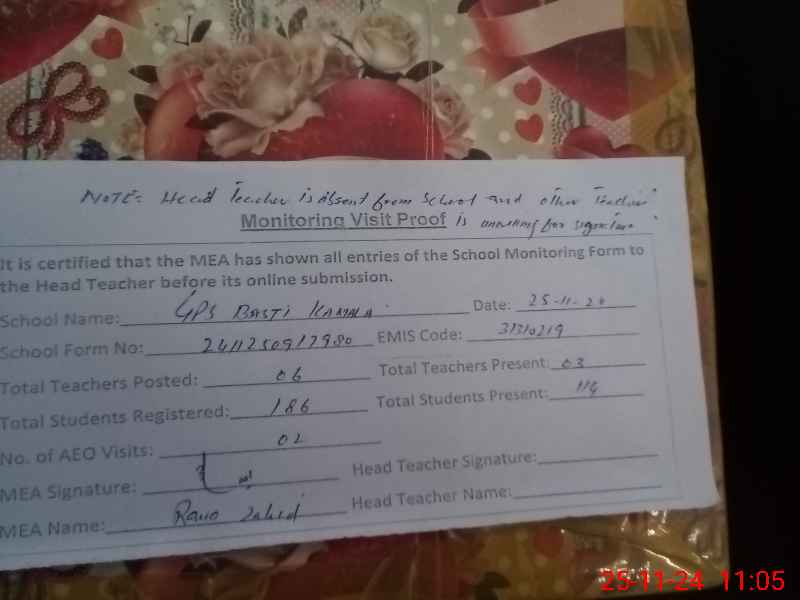 NOTE= Head Teacher is absent from School and other Teacher
Monitoring Visit Proof is for signature
It is certified that the MEA has shown all entries of the School Monitoring Form to
the Head Teacher before its online submission.
School Name: GPS BASTI KAMALA Date: 25-11-24
School Form No: 2411250917980 EMIS Code: 31310219
Total Teachers Posted: 06 Total Teachers Present: 03
Total Students Registered: 186 Total Students Present: 114
No. of AEO Visits: 02
MEA Signature: Head Teacher Signature:
MEA Name: Rano Zahid Head Teacher Name:
25-11-24 11:05